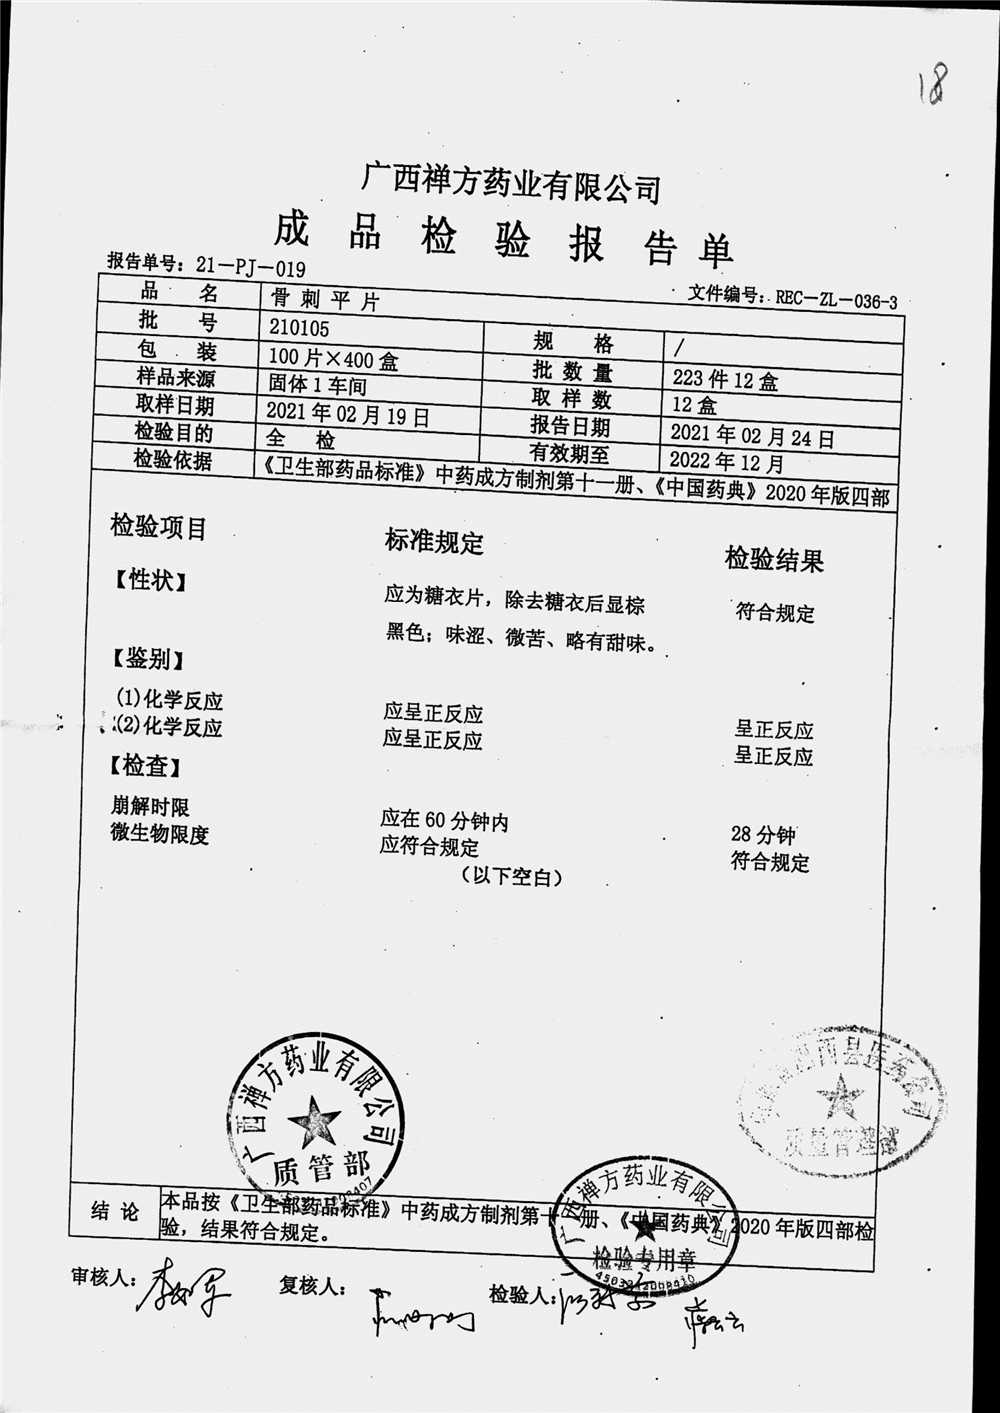 18
广西禅方药业有限公司
成品检验报告单
报告单号：21-PJ-019
文件编号：REC-ZL-036-3
品名 骨刺平片
批号 210105 规格 /
包装 100片×400盒 批数量 223件12盒
样品来源 固体1车间 取样数 12盒
取样日期 2021年02月19日 报告日期 2021年02月24日
检验目的 全检 有效期至 2022年12月
检验依据 《卫生部药品标准》中药成方制剂第十一册、《中国药典》2020年版四部
检验项目 标准规定 检验结果
【性状】 应为糖衣片，除去糖衣后显棕 符合规定
黑色；味涩、微苦、略有甜味。
【鉴别】
(1)化学反应 应呈正反应 呈正反应
(2)化学反应 应呈正反应 呈正反应
【检查】
崩解时限 应在60分钟内 28分钟
微生物限度 应符合规定 符合规定
（以下空白）
广西禅方药业有限公司
质管部
西县医药公司
质量管理部
结论 本品按《卫生部药品标准》中药成方制剂第十一册、《中国药典》2020年版四部检
验，结果符合规定。
广西禅方药业有限公司
检验专用章
审核人： 复核人： 检验人：